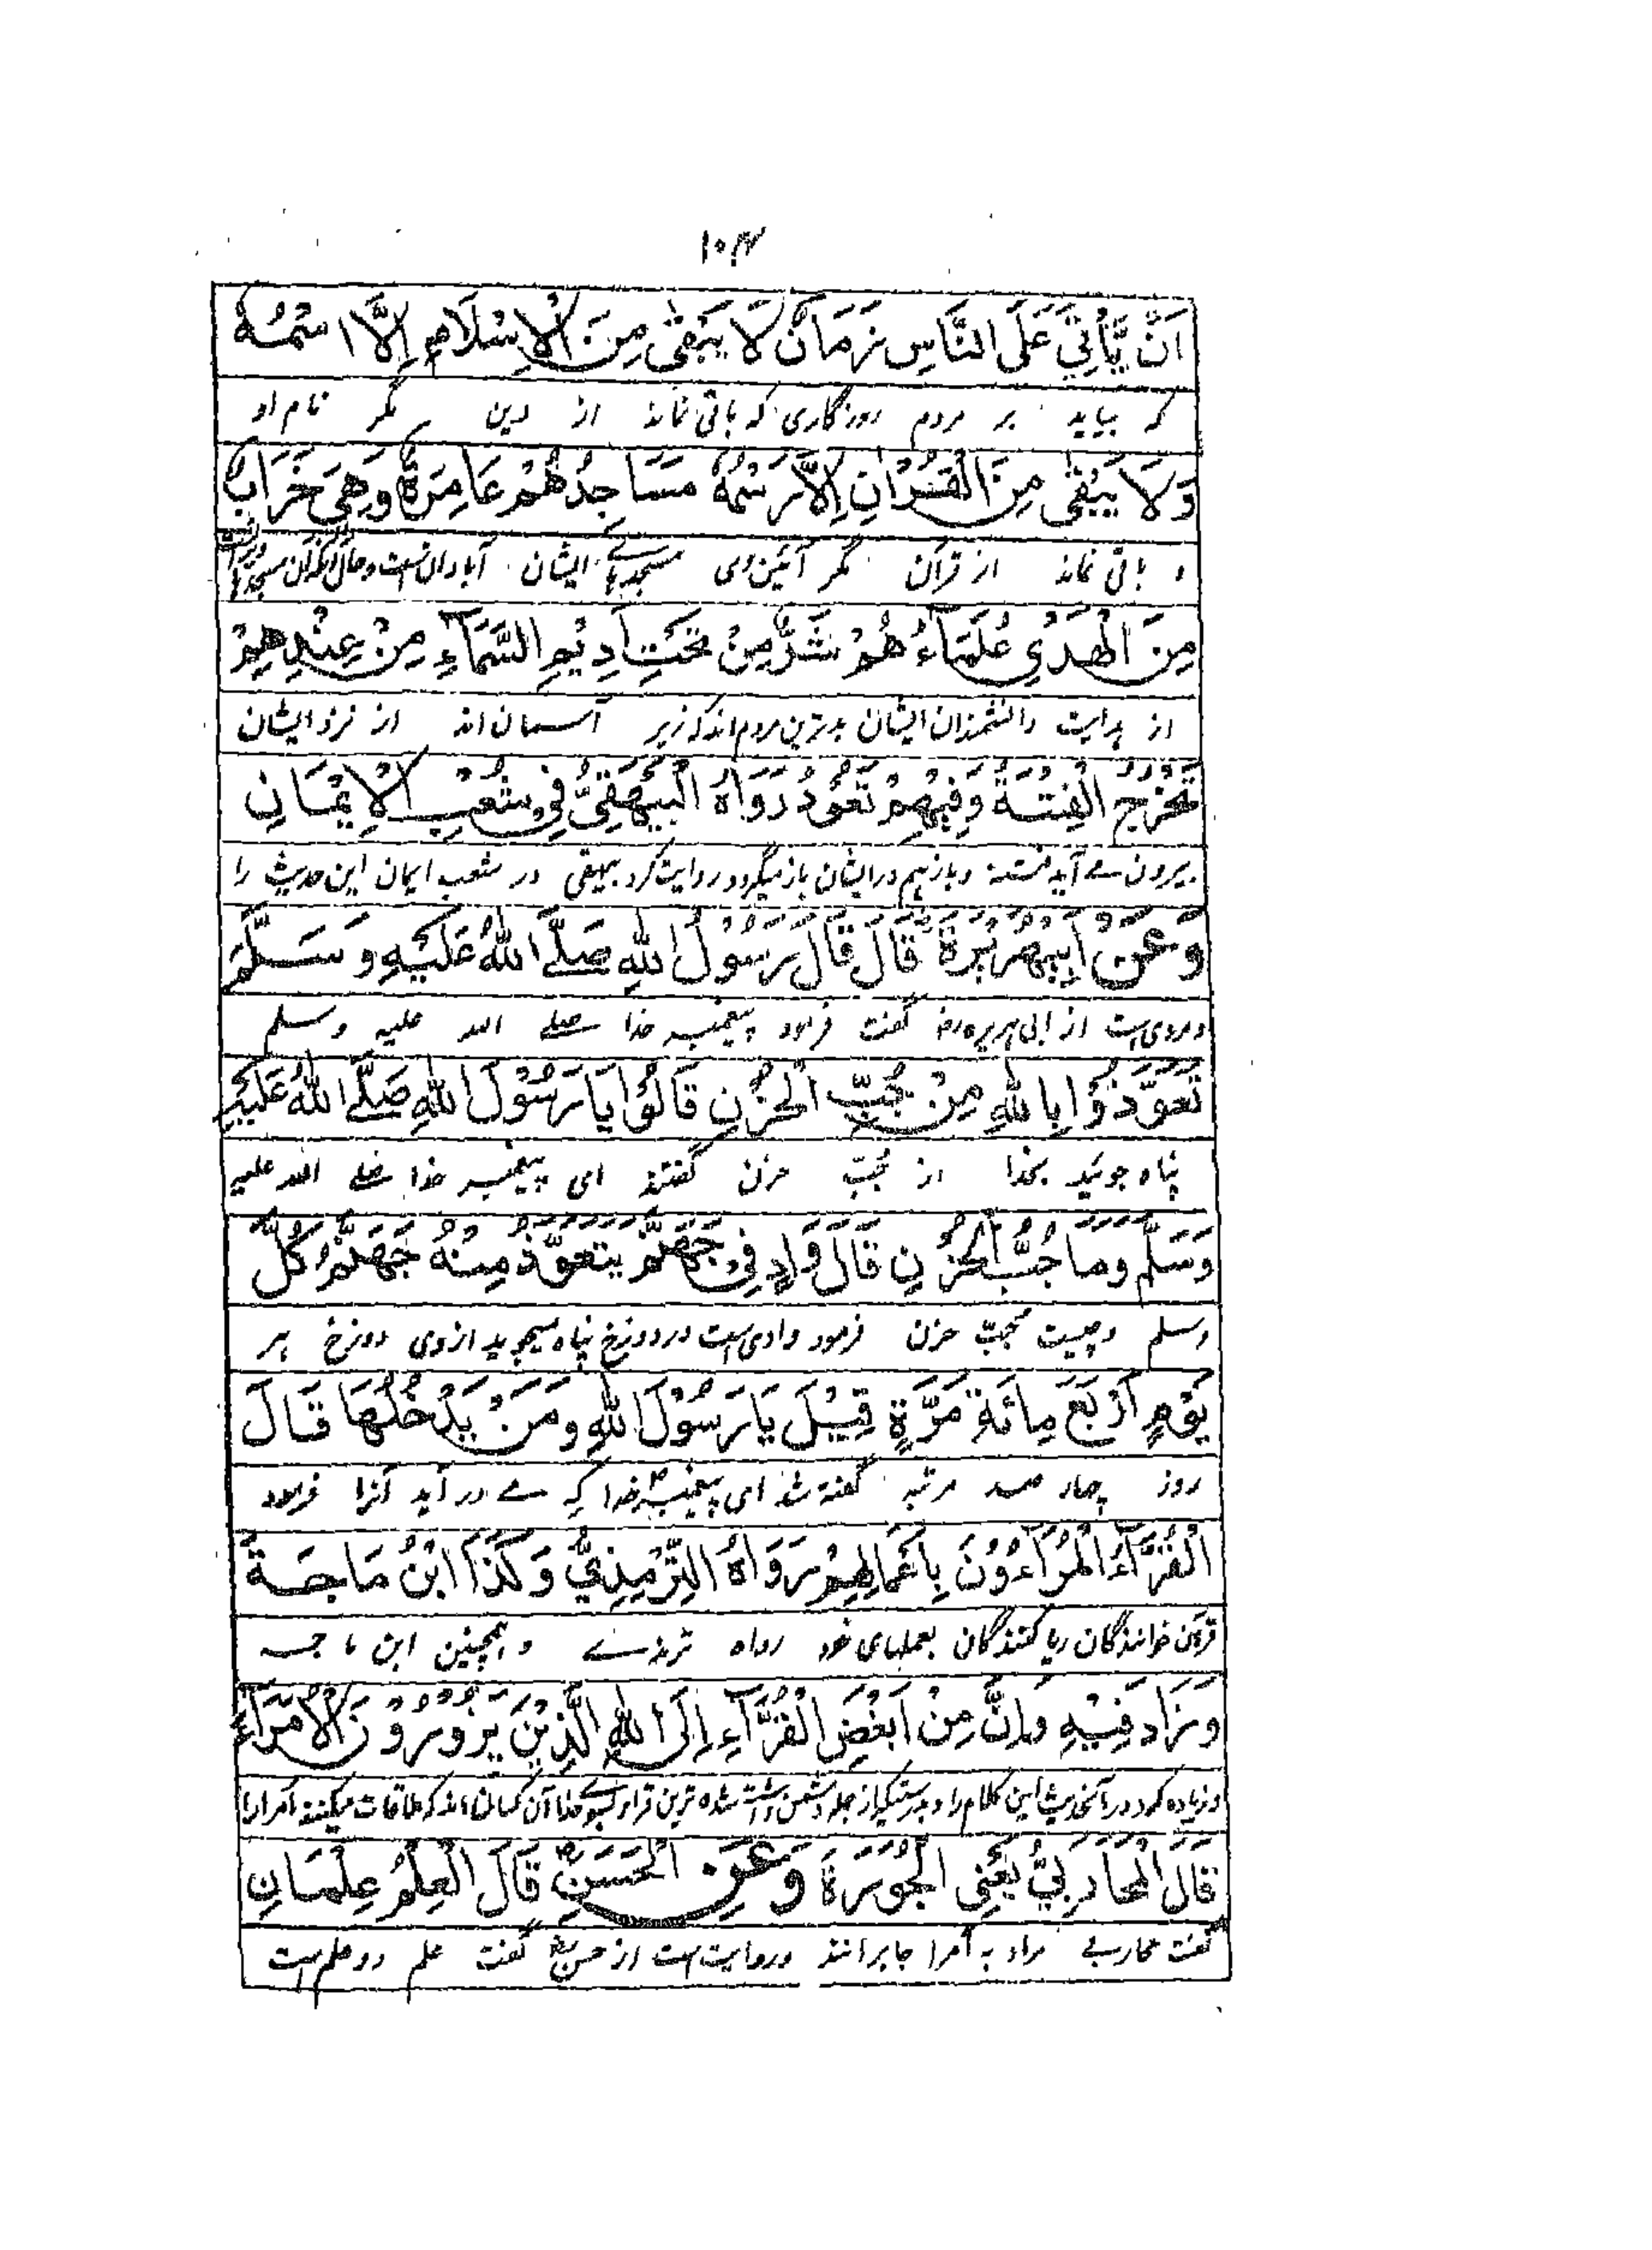 ۱۰۴
اَنْ يَّأْتِيَ عَلَى النَّاسِ زَمَانٌ لَا يَبْقٰى مِنَ الْاِسْلَامِ اِلَّا اسْمُهٗ
که بیاید بر مردم روزگاری که باقی نماند از دین مگر نام او
وَلَا يَبْقٰى مِنَ الْقُرْاٰنِ اِلَّا رَسْمُهٗ مَسَاجِدُهُمْ عَامِرَةٌ وَهِيَ خَرَابٌ
و باقی نماند از قرآن مگر آئین وی مسجدهاے ایشان آبادان است و حال آنکه آن مسجدها
مِنَ الْهُدٰي عُلَمَاءُهُمْ شَرُّ مِنْ تَحْتِ اَدِيْمِ السَّمَآءِ مِنْ عِنْدِهِمْ
از هدایت دانشمندان ایشان بدترین مردم اند که زیر آسمان اند از نزد ایشان
تَخْرُجُ الْفِتْنَةُ وَفِيْهِمْ تَعُوْدُ رَوَاهُ الْبَيْهَقِيُّ فِيْ شُعَبِ الْاِيْمَانِ
بیرون مے آید فتنه و باز هم در ایشان باز میگردد روایت کرد بیهقی در شعب ایمان این حدیث را
وَعَنْ اَبِيْهُرَيْرَةَ قَالَ قَالَ رَسُوْلُ اللهِ صَلَّى اللهُ عَلَيْهِ وَسَلَّمَ
و مروی است از ابی هریره رض گفت فرمود پیغمبر خدا صلے الله علیه وسلم
تَعَوَّذُوْا بِاللهِ مِنْ جُبِّ الْحُزْنِ قَالُوْا يَا رَسُوْلَ اللهِ صَلَّى اللهُ عَلَيْهِ
پناه جوئید بخدا از جُبّ حزن گفتند ای پیغمبر خدا صلے الله علیه
وَسَلَّمَ وَمَا جُبُّ الْحُزْنِ قَالَ وَادٍ فِيْ جَهَنَّمَ يَتَعَوَّذُ مِنْهُ جَهَنَّمُ كُلَّ
وسلم و چیست جُبّ حزن فرمود وادی است در دوزخ پناه میجوید از وی دوزخ هر
يَوْمٍ اَرْبَعَ مِائَةِ مَرَّةٍ قِيْلَ يَا رَسُوْلَ اللهِ وَمَنْ يَدْخُلُهَا قَالَ
روز چهار صد مرتبه گفته شد ای پیغمبر خدا که مے در آید آنرا فرمود
الْقُرَّآءُ الْمُرَآءُوْنَ بِاَعْمَالِهِمْ رَوَاهُ التِّرْمِذِيُّ وَكَذَا ابْنُ مَاجَةَ
قرآن خوانندگان ریا کنندگان بعملهای خود رواه ترمذے و همچنین ابن ماجه
وَزَادَ فِيْهِ وَاِنَّ مِنْ اَبْغَضِ الْقُرَّآءِ اِلَى اللهِ الَّذِيْنَ يَزُوْرُوْنَ الْاُمَرَآءَ
و زیاده کرد در آنحدیث این کلام را و بدرستیکه از جمله دشمن داشته شده ترین قراء بسوے خدا آن کسانی اند که ملاقات میکنند اُمرا را
قَالَ الْمُحَارِبِيُّ يَعْنِي الْجُوْرَةَ وَعَنِ الْحَسَنِ قَالَ الْعِلْمُ عِلْمَانِ
گفت محاربے مراد به اُمرا جابرانند و روایت است از حسن گفت علم دو علم است